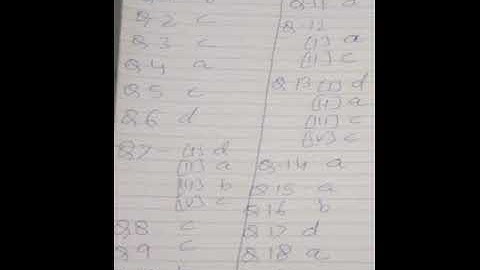 Q 2 c
Q 3 c
Q 4 a
Q 5 c
Q 6 d
Q 7 (i) d
(ii) a
(iii) b
(iv) c
Q 8 c
Q 9 c
Q 11 a
Q 12
(i) a
(ii) c
Q 13 (i) d
(ii) a
(iii) c
(iv) c
Q 14 a
Q 15 a
Q 16 b
Q 17 d
Q 18 a